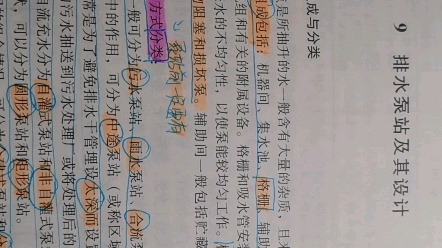 9 排水泵站及其设计
成与分类
是所抽升的水一般含有大量的杂质、且水
组成包括：机器间、集水池、格栅、辅助
组和有关的附属设备。格栅和吸水管安
水的不均匀性，以使泵能较均匀工作。
阻塞和损坏泵。辅助间一般包括贮藏
方式分类
一般可分为污水泵站、雨水泵站、合流泵
中的作用，可分为中途泵站（或称区域
常是为了避免排水干管埋设太深而设置
污水抽送到污水处理厂或将处理后的
自流充水分为自灌式泵站和非自灌式泵
，可以分为圆形泵站和矩形泵站。